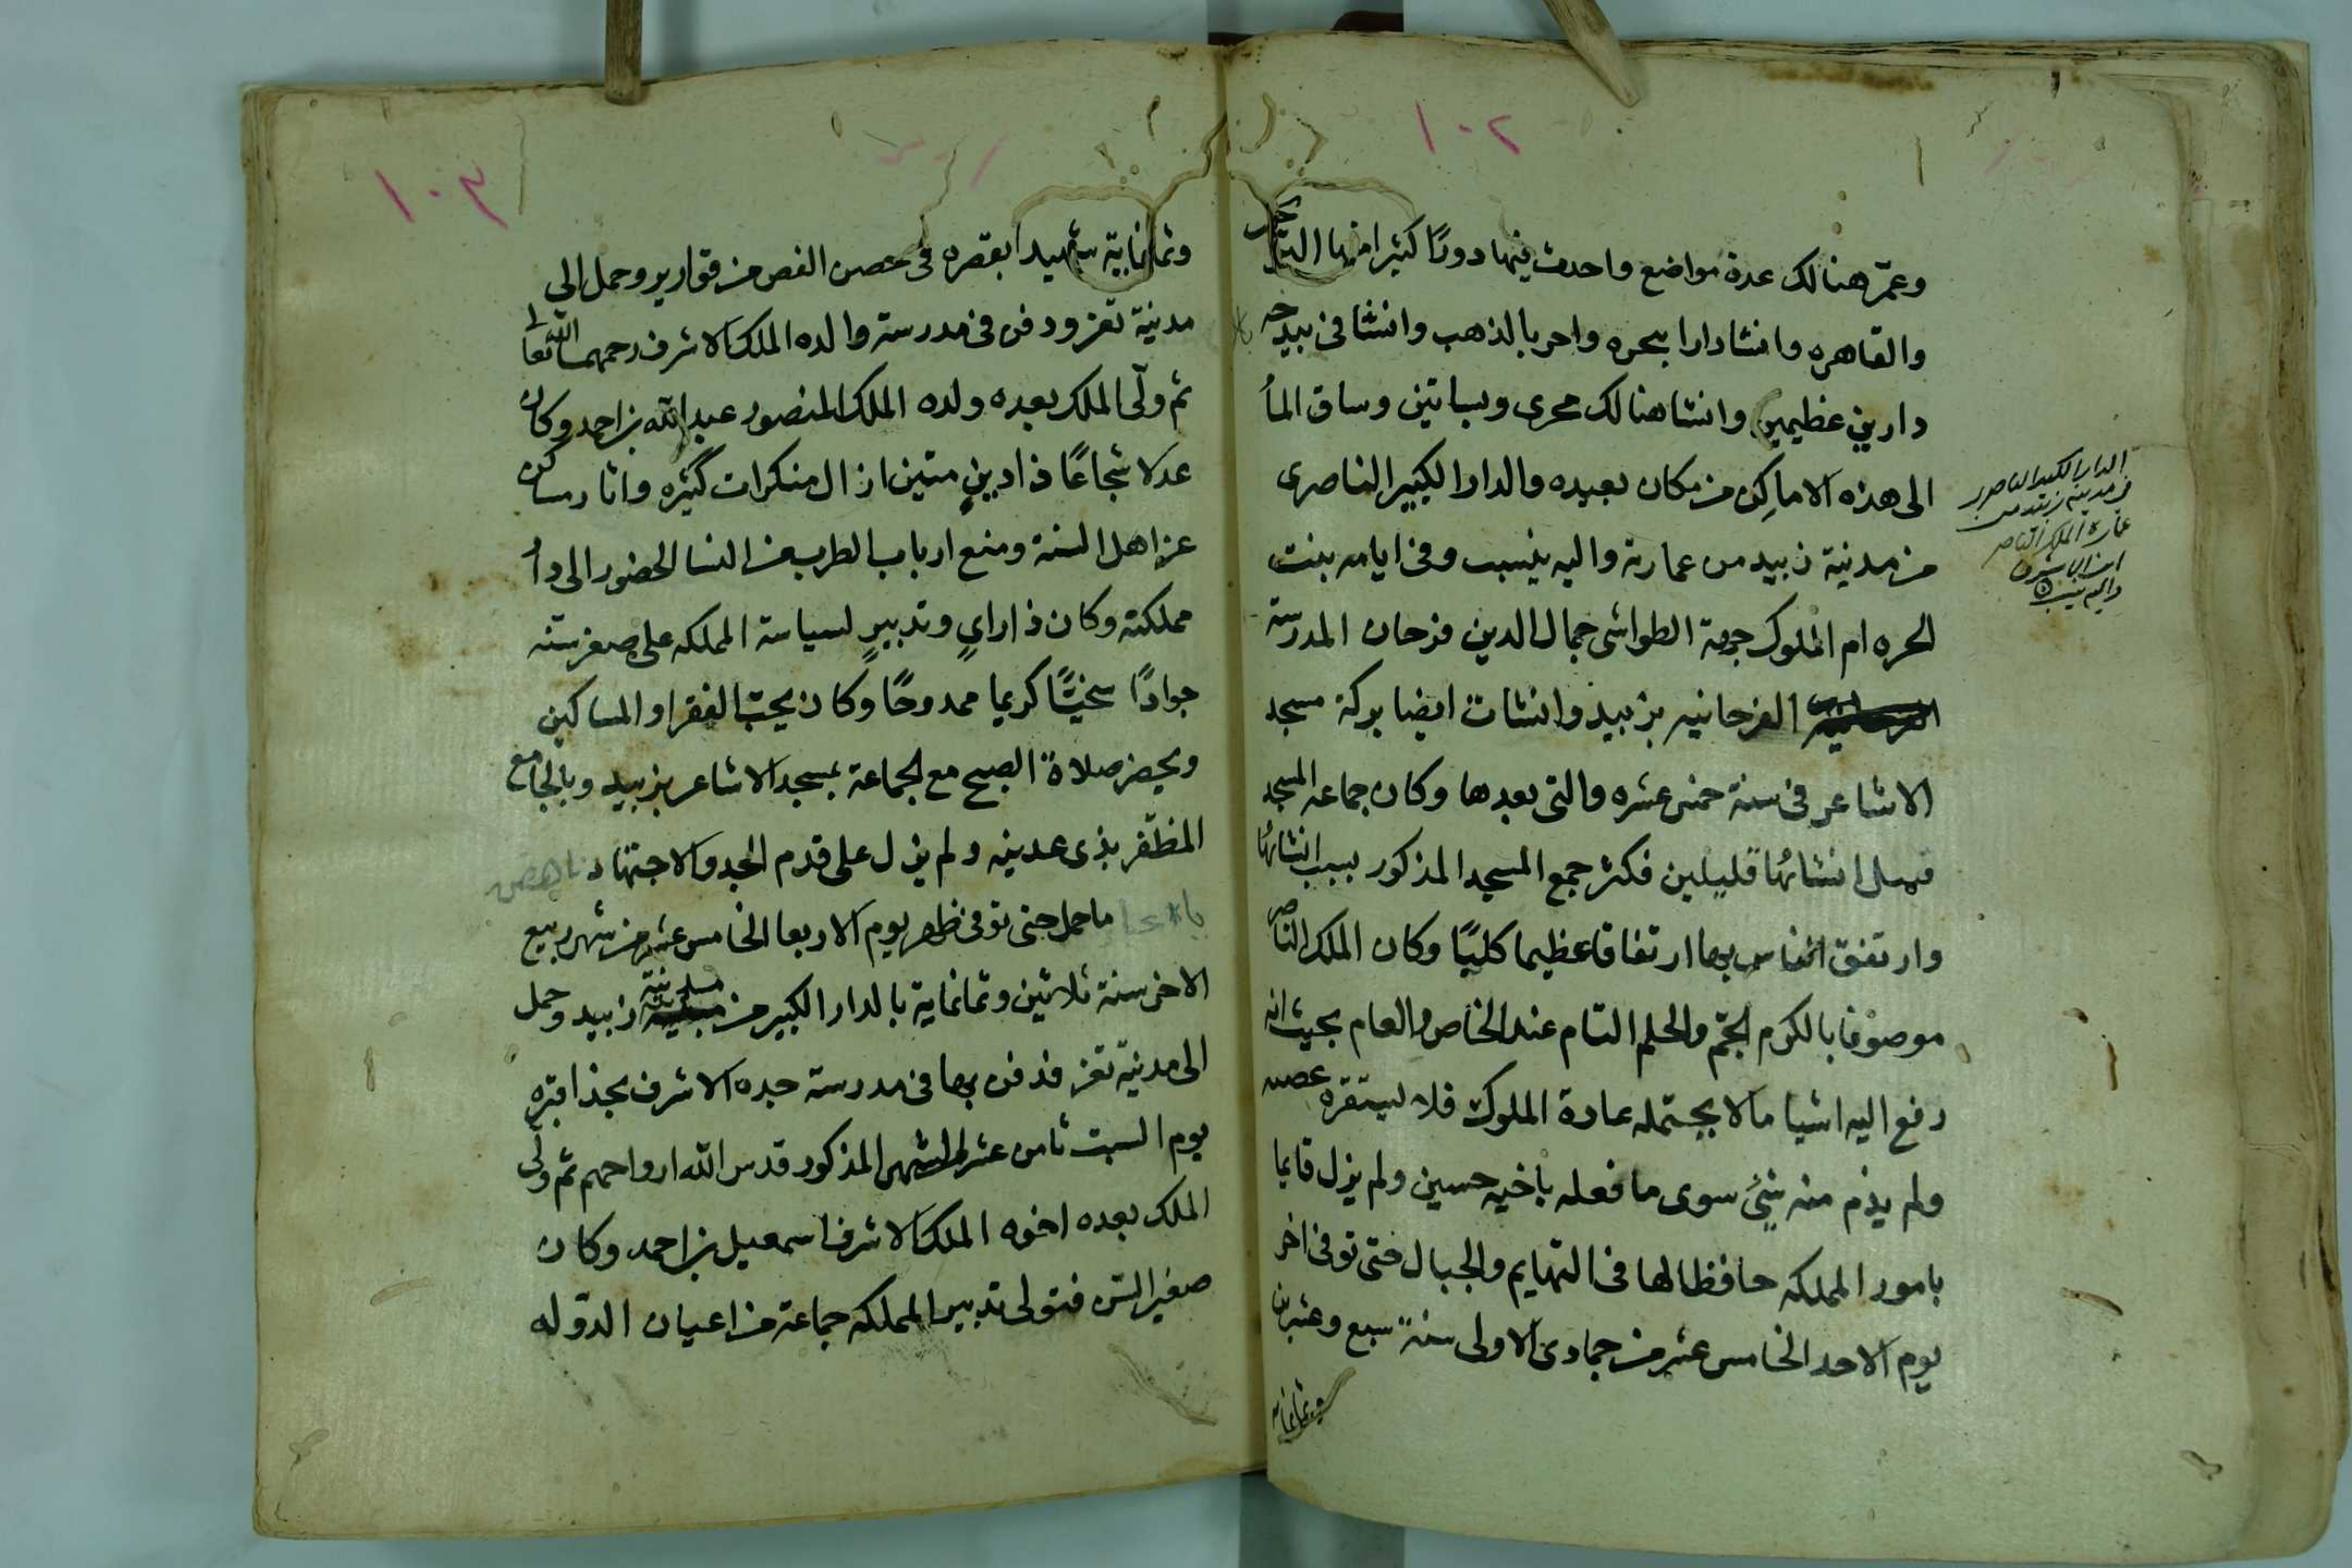 ١٠٢
وعمّر هنالك عدة مواضع واحدث فيها دورًا كثيرا منها
والقاهره وانشا دارا بحره واحر بالذهب وانشا في بيدحه
دارين عظيمين وانشا هنالك مجرى وبساتين وساق المأ
الى هذه الاماكِن من مكان بعيده والدار الكبير الناصرى
من مدنية زبيد من عمارته واليه ينسب وفي ايامه بنت
الحره ام الملوك جهة الطواشى جمال الدين فرحان المدرسة
الفرحانيه بزبيد وانشات ايضا بركة مسجد
الاشاعر في سنة خمس عشره والتى بعدها وكان جماعه المسجد
قبل انشائها قليلين فكثر جمع المسجد المذكور بسبب انشائها
وارتفق الناس بها ارتفاقا عظيما كليًا وكان الملك الناصر
موصوفا بالكرم الجّم والحلم التام عند الخاص والعام بحيث انه
رفع اليه اشيا مالا يحتمله عادة الملوك فلا يستفزه عصه
ولم يذم منه شئ سوى ما فعله باخيه حسين ولم يزل قايما
بامور المملكه حافظا لها في التهايم والجبال حتى توفى اخر
يوم الاحد الخامس عشر من جمادى الاولى سنة سبع وعشرين
وثمانمايه
الدار الكبير الناصرى
من مدينه زبيد من
عمارة الملك الناصر
ابن الاشرف
واليه ينسب
١٠٣
وثمانماية شهيدا بقصره فى حصن الفص من قوارير وحمل الى
مدنية تعز ودفن في مدرسة والده الملك الاشرف رحمهما الله تعالى
ثم ولّى الملك بعده ولده الملك المنصور عبد الله بن احمد وكان
عدلا شجاعًا ذا دينٍ متين ازال منكرات كثيره واثار ساكن
عن اهل السنة ومنع ارباب الطرب من النسا الحضور الى دا
مملكته وكان ذا رايٍ وتدبيرٍ لسياسة المملكه على صغر سنه
جوادًا سخيًّا كريما ممدوحًا وكان يحب الفقرا والمساكين
ويحضر صلاة الصبح مع الجماعة بمسجد الاشاعر بزبيد وبالجامع
المظفر بذى عدينه ولم يزل على قدم الجد والاجتهاد ناهض
ما حمل حتى توفى ظهر يوم الاربعا الخامس عشر من شهر ربيع
الاخر سنة ثلاثين وثمانماية بالدار الكبير من مدنية زبيد وحمل
الى مدنية تعز فدفن بها في مدرسة جده الاشرف بحذا قبره
يوم السبت ثامن عشر الشهر المذكور قدس الله ارواحهم ثم ولّى
الملك بعده اخوه الملك الاشرف اسمعيل بن احمد وكان
صغير السّن فتولى تدبير المملكه جماعة من اعيان الدّوله